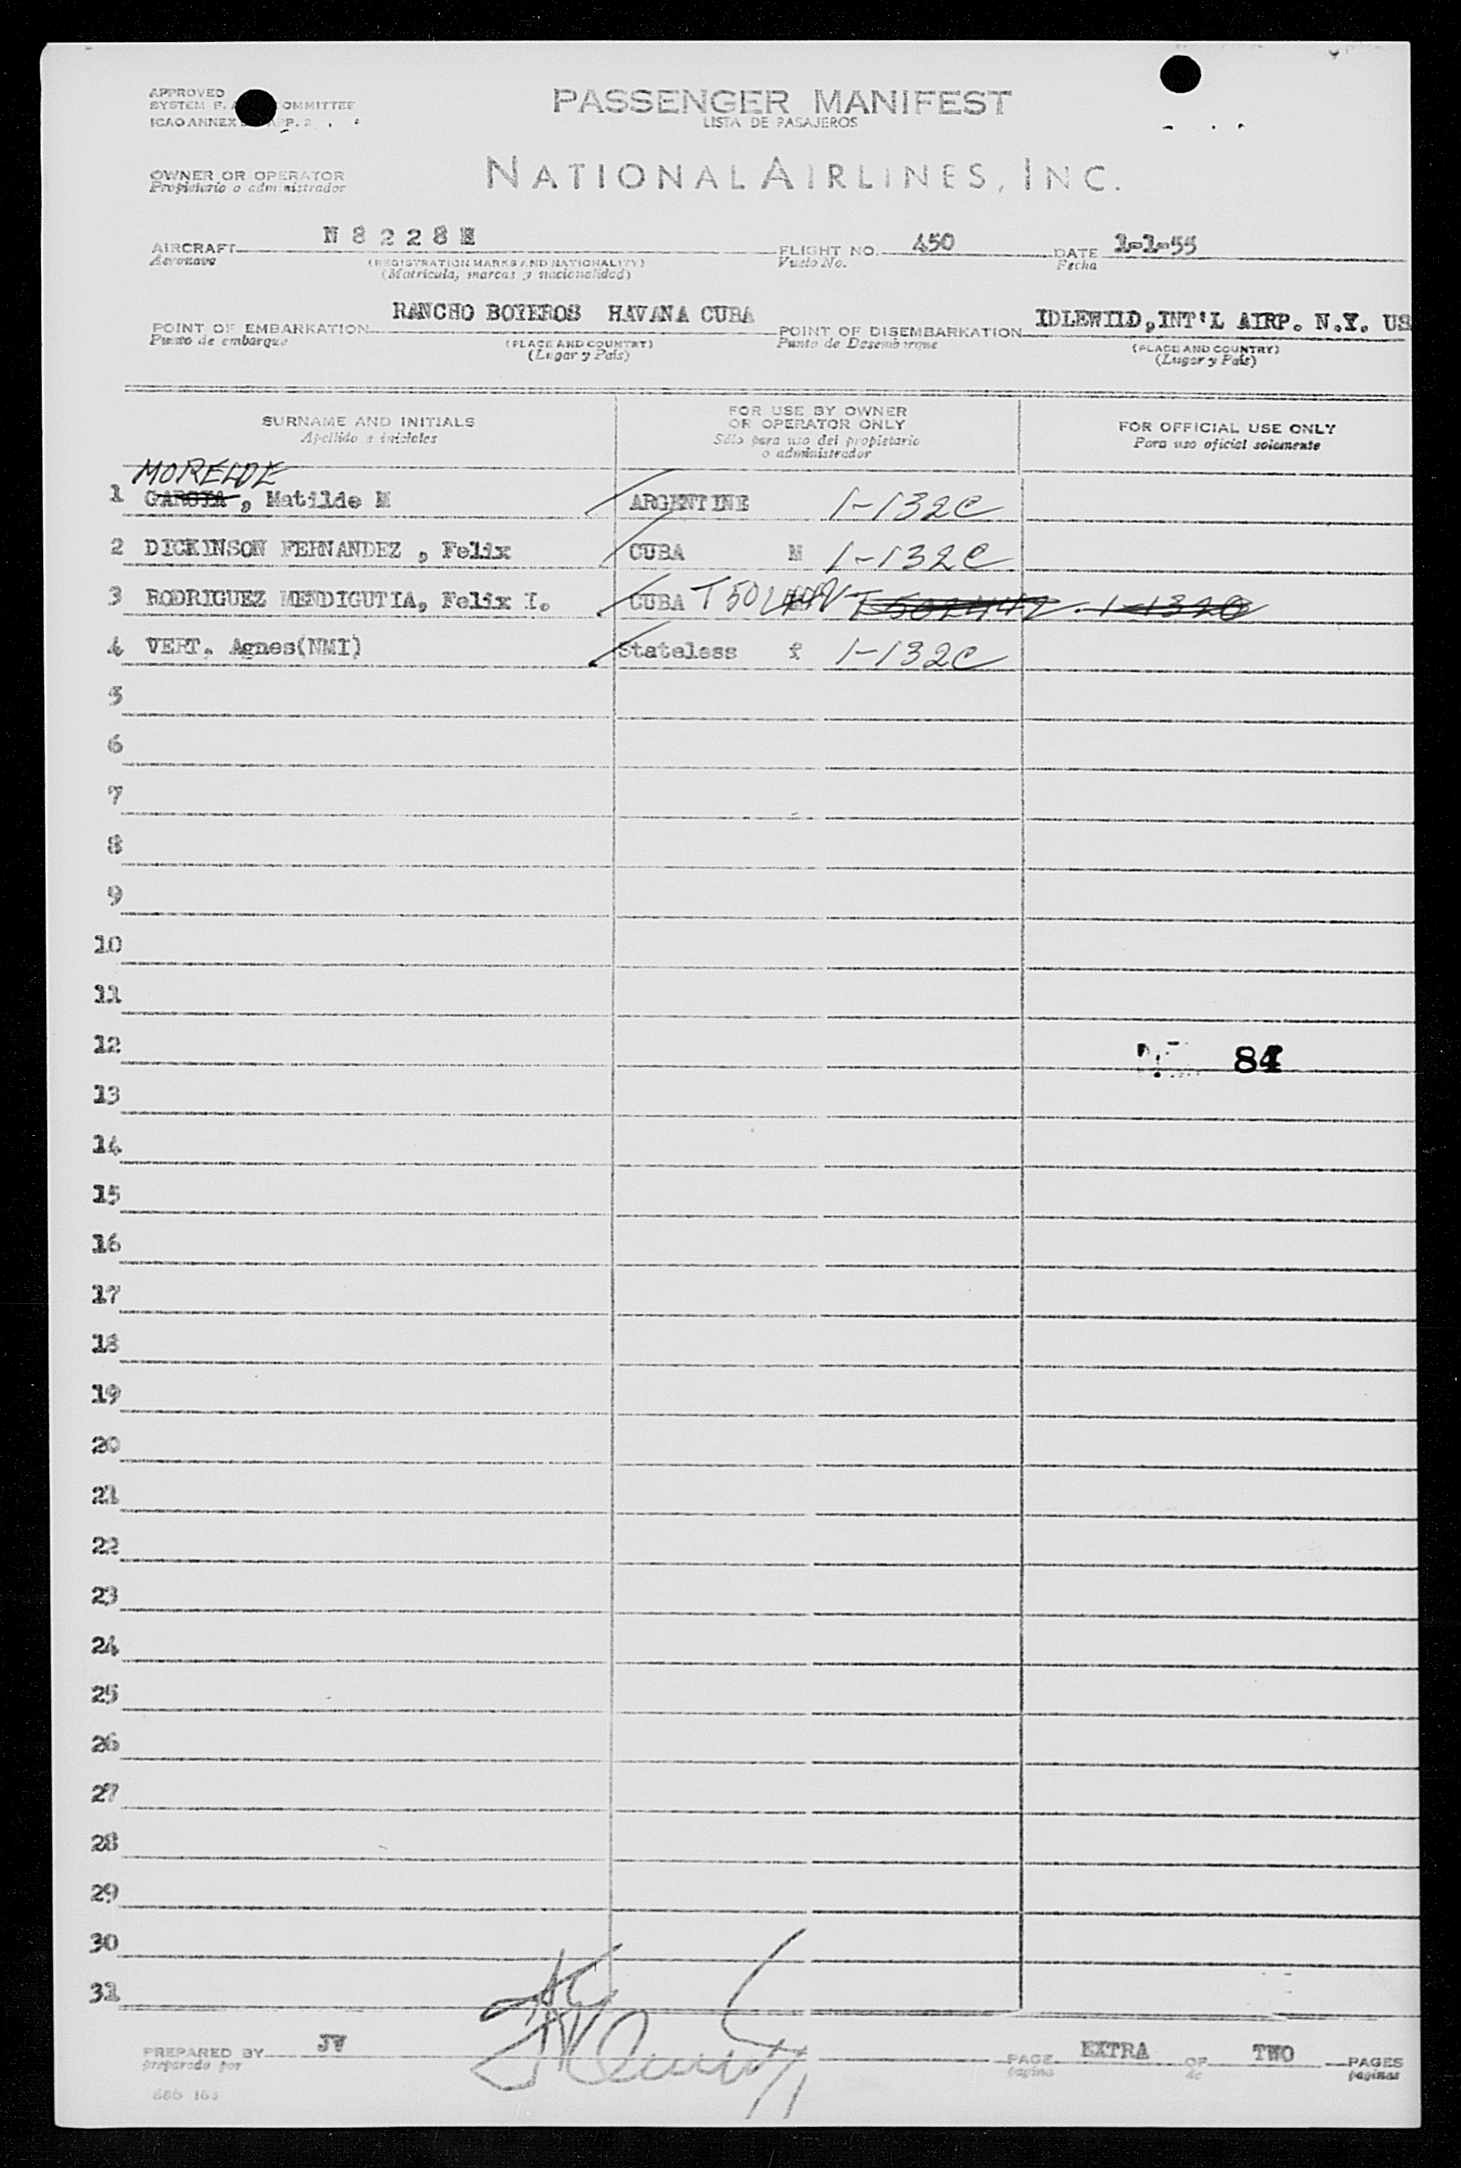 APPROVED
PASSENGER MANIFEST
LISTA DE PASAJEROS
ICAO ANNEX
OWNER OR OPERATOR
Propietario o administrador
NATIONAL AIRLINES, INC.
AIRCRAFT N 8 2 2 8 H FLIGHT NO. 450 DATE 1-1-55
Aeronave (REGISTRATION MARKS AND NATIONALITY) Vuelo No. Fecha
(Matricula, marcas y nacionalidad)
POINT OF EMBARKATION RANCHO BOYEROS HAVANA CUBA POINT OF DISEMBARKATION IDLEWILD, INT'L AIRP. N.Y. US
Punto de embarque (PLACE AND COUNTRY) Punto de Desembarque (PLACE AND COUNTRY)
(Lugar y País) (Lugar y País)
SURNAME AND INITIALS FOR USE BY OWNER OR OPERATOR ONLY FOR OFFICIAL USE ONLY
Apellido e iniciales Sólo para uso del propietario o administrador Para uso oficial solamente
MORELDE
1 GARCIA, Matilde M ARGENTINE 1-132C
2 DICKINSON FERNANDEZ , Felix CUBA M 1-132C
3 RODRIGUEZ MENDIGUTIA, Felix I. CUBA
4 VERT, Agnes(NMI) Stateless f 1-132C
5
6
7
8
9
10
11
12 84
13
14
15
16
17
18
19
20
21
22
23
24
25
26
27
28
29
30
31
PREPARED BY JV PAGE EXTRA OF TWO PAGES
preparado por pagina de paginas